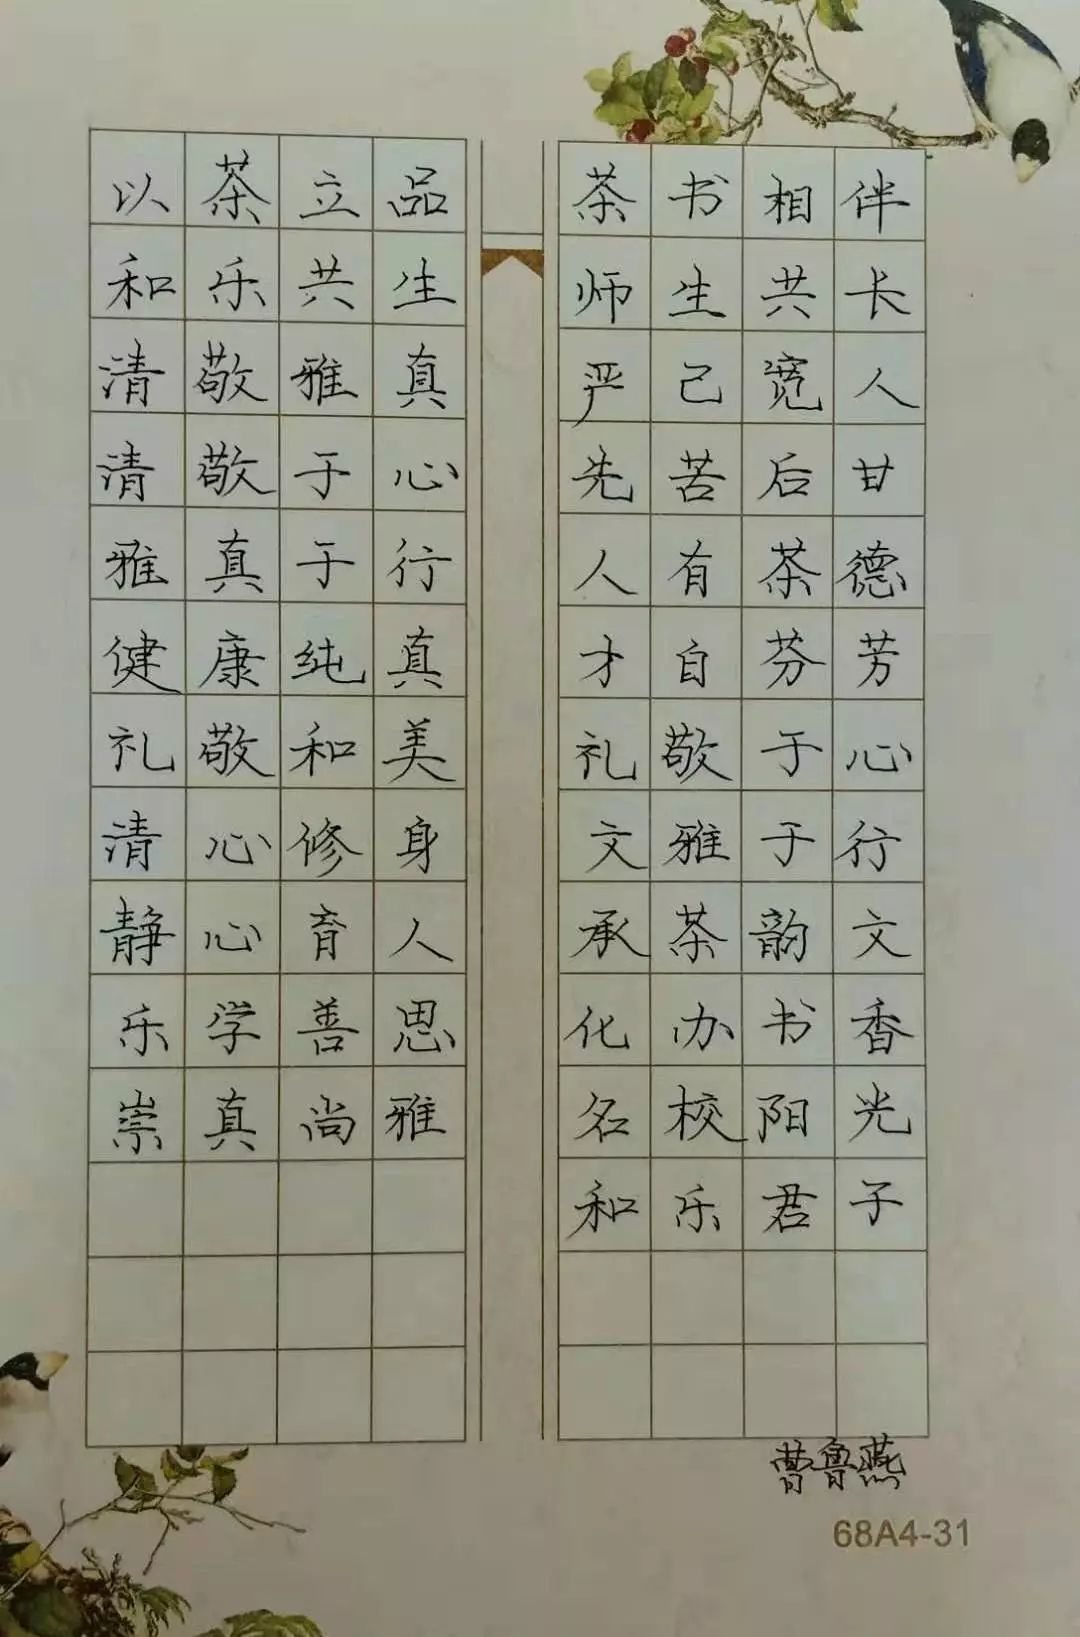 以茶立品
和乐共生
清敬雅真
清敬于心
雅真于行
健康纯真
礼敬和美
清心修身
静心育人
乐学善思
崇真尚雅
茶书相伴
师生共长
严己宽人
先苦后甘
人有茶德
才自芬芳
礼敬于心
文雅于行
承茶韵文
化办书香
名校阳光
和乐君子
曹鲁燕
68A4-31